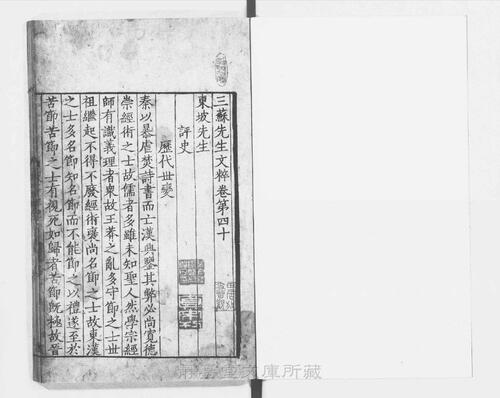 三蘇先生文粹卷第四十
東坡先生
評史
歷代世變
秦以暴虐焚詩書而亡漢興鑒其弊必尚寬德
崇經術之士故儒者多雖未知聖人然學宗經
師有識義理者衆故王莽之亂多守節之士世
祖繼起不得不廢經術褒尚名節之士故東漢
之士多名節知名節而不能節之以禮遂至於
苦節苦節之士有視死如歸者苦節旣極故晉
文庫所藏